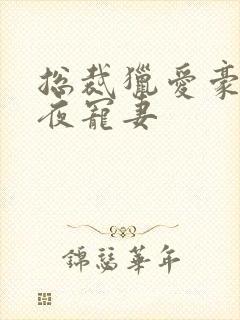 总裁獵愛豪
夜寵妻
錦瑟華年